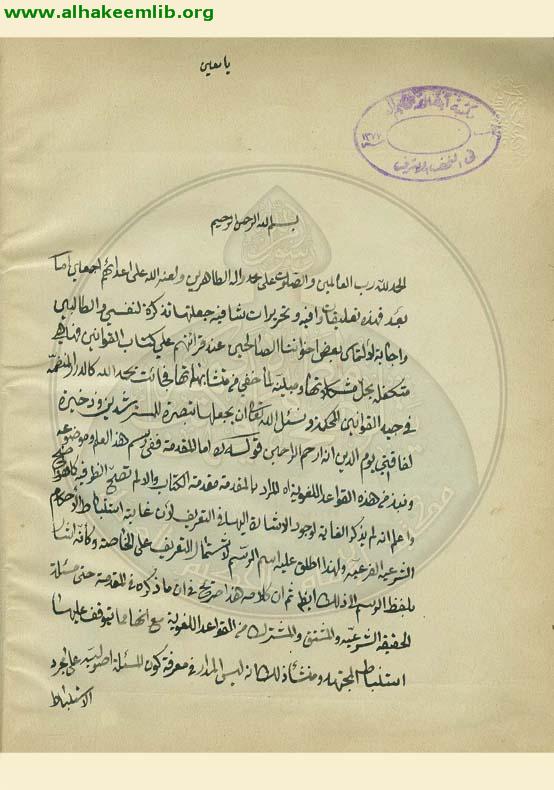 www.alhakeemlib.org
يا معين
بسم الله الرحمن الرحيم
الحمد لله رب العالمين والصلوة على محمد واله الطاهرين ولعنة الله على اعدائهم اجمعين اما
بعد فهذه تعليقات وافيه وتحريرات شافيه جعلتها تذكرة لنفسي والطالبين
اجابة لالتماس بعض اخواننا الصالحين عند قرائتهم علي كتاب القوانين فهاهي
متكفلة بحل مشكلاتها ومبينة لما خفي من متشابهاتها فجائت بحمد الله كالدر المنظمة
في جيد القوانين المحكمة ونسئل الله تعالى ان يجعلها تبصرة للمسترشدين وذخيرة
لفاقتي يوم الدين انه ارحم الراحمين قوله ره اما المقدمة ففي رسم هذا العلم وموضوعه
ونبذ من هذه القواعد اللغوية اه المراد بالمقدمة مقدمة الكتاب والا لم تصح الظرفية كما هو واضح
واعلم انه لم يذكر الغاية لوجود الاشارة اليها في التعريف لان غاية استنباط الاحكام
الشرعية الفرعية ولهذا اطلق عليه اسم الرسم لاشتمال التعريف على الخاصة وكانه اشار
بلفظ الرسم الى ذلك ايضا ثم ان كلامه هذا صريح في ان ما ذكره في المقدمة حتى مسئلة
الحقيقة الشرعية والمشتق والمشترك من القواعد اللغوية مع انها مما يتوقف عليها
استنباط المجتهد ومنشأ ذلك انه ليس المدار في معرفة كون المسئلة اصولية على مجرد
الاستنباط